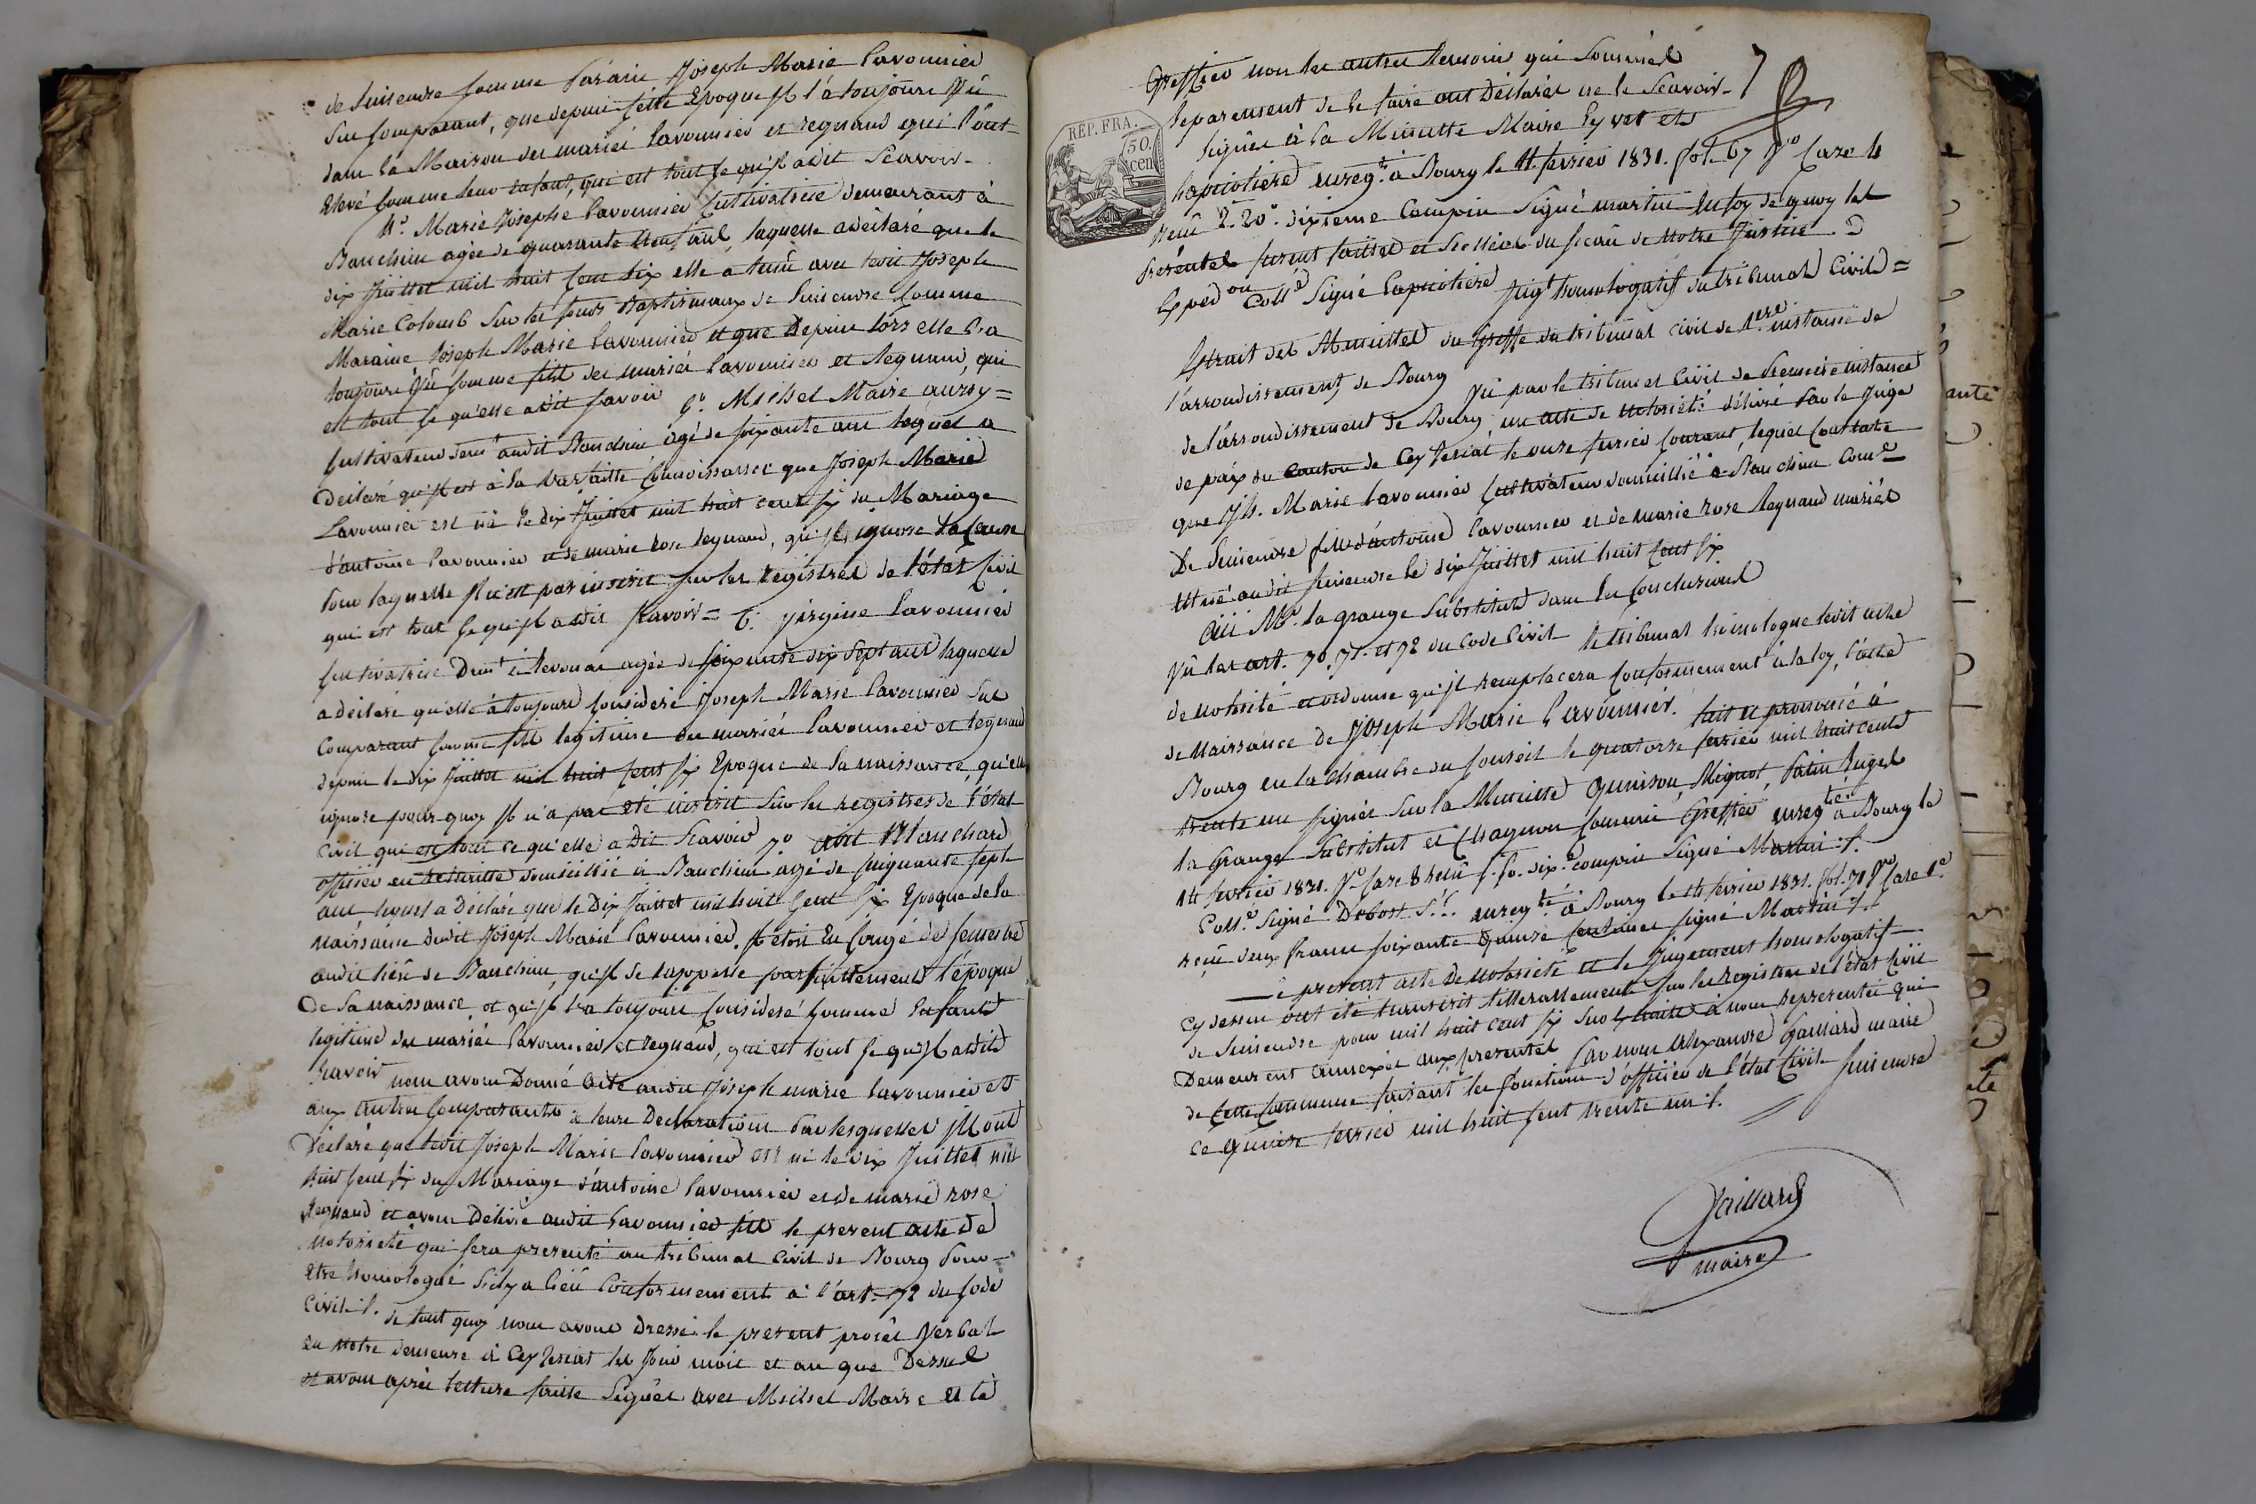 de Simendre comme Parain Joseph Marie Lavoumier
Sus Comparant, que depuis cette Epoque Il l'a toujours Vû
dans la Maison des mariés Lavoumier et regnaud qui l'ont
Elevé comme leur Enfant, qui est tout ce qu'il a dit Scavoir.
4º. Marie Josephe Lavoumier Cultivatrice demeurant à
agée de quarante neuf ans, laquelle a déclaré que le
dix Juillet mil huit cent Six elle a tenu avec ledit Joseph
Marie Colomb Sur les fonds Baptismaux de Simendre Comme
Maraine Joseph Marie Lavoumier et que Depuis lors elle l'a
toujours Vû Comme fils des mariés Lavoumier et Regnaud, qui
est tout ce qu'elle a dit Savoir 5º. Michel Maire
Cultivateur demt audit agé de Soixante ans lequel a
Declaré qu'il est à la parfaitte Connoissance que Joseph Marie
Lavoumier est né le dix Juillet mil huit cent Six du Mariage
d'antoine Lavoumier et de marie rose regnaud, qu'il ignore la Cause
Pour laquelle Il n'est pas inscrit Sur les registres de l'état Civil
qui est tout ce qu'il a dit Scavoir = 6º. Virginie Lavoumier
Cultivatrice Demt à agée de Soixante dix Sept ans laquelle
a déclaré qu'elle a toujours Considéré Joseph Marie Lavoumier Sus
Comparant Comme fils legitime des mariés Lavoumier et Regnaud
depuis le dix Juillet mil huit Cent Six Epoque de Sa naissance, qu'elle
ignore pourquoy Il n'a pas eté inscrit Sur les registres de l'état
Civil qui est tout ce qu'elle a Dit Scavoir 7º Blanchard
officier en retraitte domicillié à agé de Cinquante Sept
ans, lequel a Déclaré que le Dix Juillet mil huit Cent Six Epoque de la
naissance dudit Joseph Marie Lavoumier, Il etoit En Congé de Semestre
audit lieu de qu'il Se rappelle parfaittement l'époque
De Sa naissance, et qu'il l'a toujours Considéré Comme Enfant
legitime des mariés Lavoumier et regnaud, qui est tout ce qu'il a dit
Savoir nous avons Donné Acte audit Joseph marie Lavoumier et
aux autres Comparants à leurs Declarations Par lesquelles Ils ont
Déclaré que ledit Joseph Marie Lavoumier est né le dix Juillet mil
huit Cent Six du Mariage d'antoine Lavoumier et de marie rose
Regnaud et avons Délivré audit Lavoumier fils le present acte de
Notorieté qui Sera presenté au tribunal Civil de Bourg Pour
être homologué S'il y a lieu Conformement à l'art. 72 du Code
Civil. de tout quoy nous avons dressé le present procès Verbal
en notre demeure à Ceyzeriat les Jour mois et an que Dessus
et avons après lecture faitte Signé avec Michel Maire et le
Greffier non les autres temoins qui Sommés
Separement de le faire ont Déclarés ne le Scavoir
Signés à la Minutte Maire et
enregté. à Bourg le 11. fevrier 1831. fol. 67 Vº Case 4
recu 2. 20. dixieme Compris Signé martin En foy de quoy les
presentes furent et Scellées du Sceau de notre Justice.
Expedon Collé Signé Jugt homologatif du tribunal Civil =
Extrait des Minuttes du Greffe du tribunal civil de 1ere instance de
l'arrondissement de Bourg Vû par le tribunal Civil de Premiere instance
de l'arrondissement de Bourg, un acte de notorieté délivré Par le Juge
de paix du Canton de Ceyzeriat le onze fevrier Courant, lequel Constate
que Jh. Marie Lavoumier Cultivateur domicillié à Come
De Simendre fils d'antoine Lavoumier et de marie rose Regnaud mariés
est né audit Simendre le dix Juillet mil huit Cent Six
Oüi Mr. la grange Substitut dans Ses Conclusions
Vû les art. 70, 71. et 72 du Code Civil le tribunal homologue ledit acte
de notorité et ordonne qu'il remplacera Conformement à la loy, l'acte
de Naissance de Joseph Marie Lavoumier. fait et prononcé à
Bourg en la Chambre du Conseil le quatorze fevrier mil huit Cent
trente un Signés Sur la Minutte Quinson, Mignot, Juges
la Grange Substitut et Chagnon Commis Greffier enregté à Bourg le
14 fevrier 1831. Vº Case 8 reçu dixe. compris Signé Martin.
Collé. Signé Debost. enregté. à Bourg le 14 fevrier 1831. fol. 71 Vº Case 1e.
reçu deux francs Soixante quinze Centimes Signé Martin.
Le present acte De Notorieté et le Jugement homologatif
Cy dessus ont été transcrit litterallement Sur les registres de l'état Civil
de Simendre pour mil huit cent Six Sur à nous représentés qui
Demeurent annexés aux presentes Par nous Alexandre Gaillard maire
de Cette Commune faisant les fonctions d'officier de l'état Civil Simendre
ce quinze fevrier mil huit Cent trente un.
Gaillard
maire
REP. FRA.
50.
cen
ante